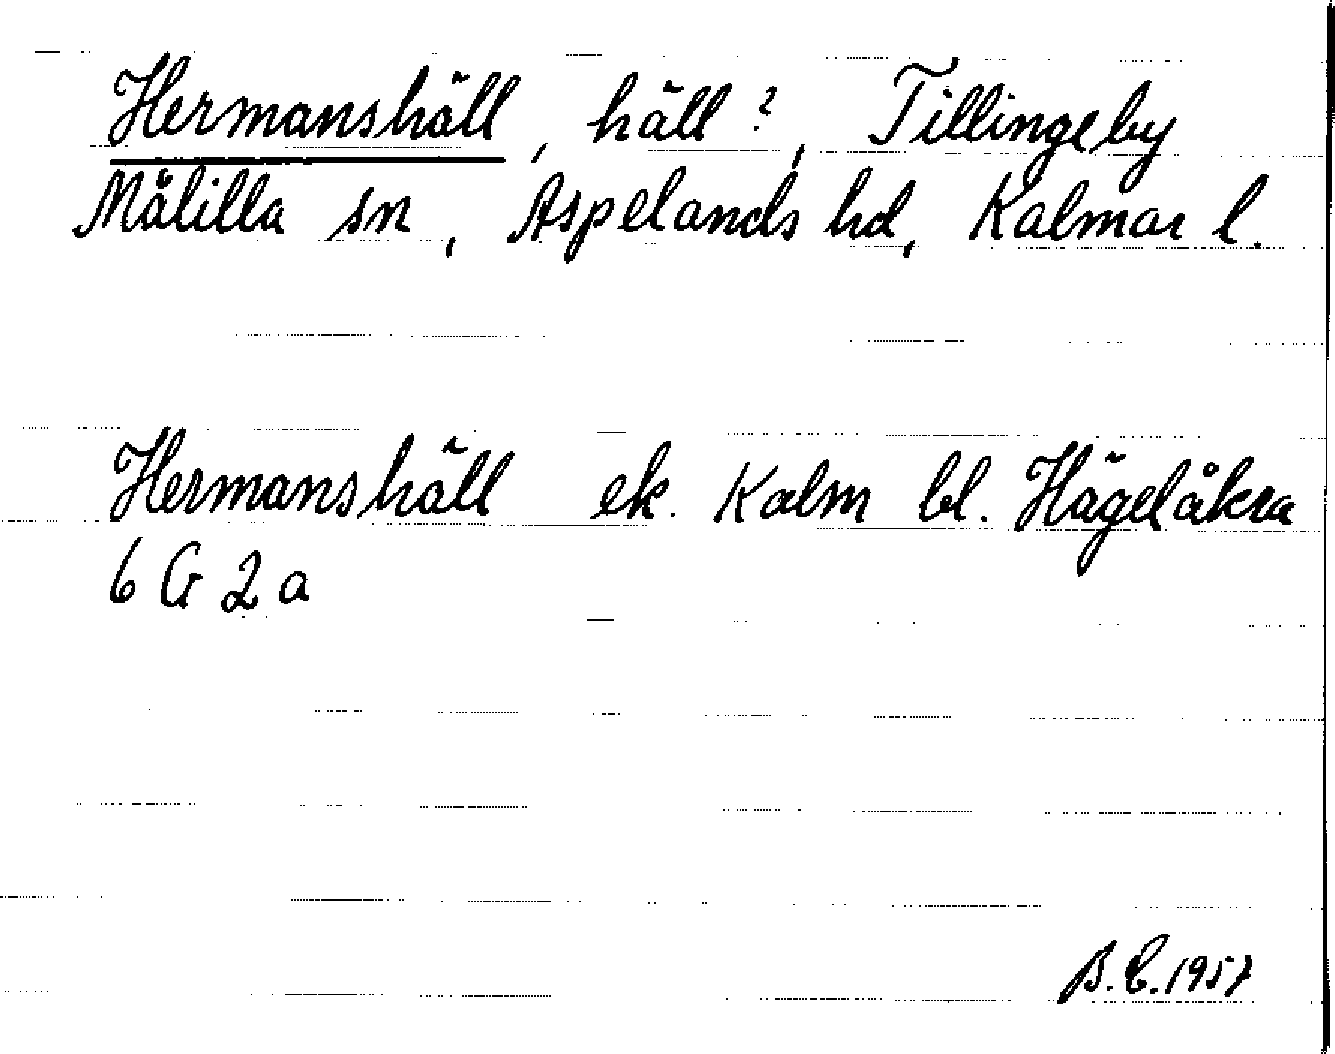 Hermanshäll, häll?, Tillingeby
Målilla sn, Aspelands hd, Kalmar l.
Hermanshäll ek. Kalm bl. Hägelåkra
6 G 2 a
B.E. 1957